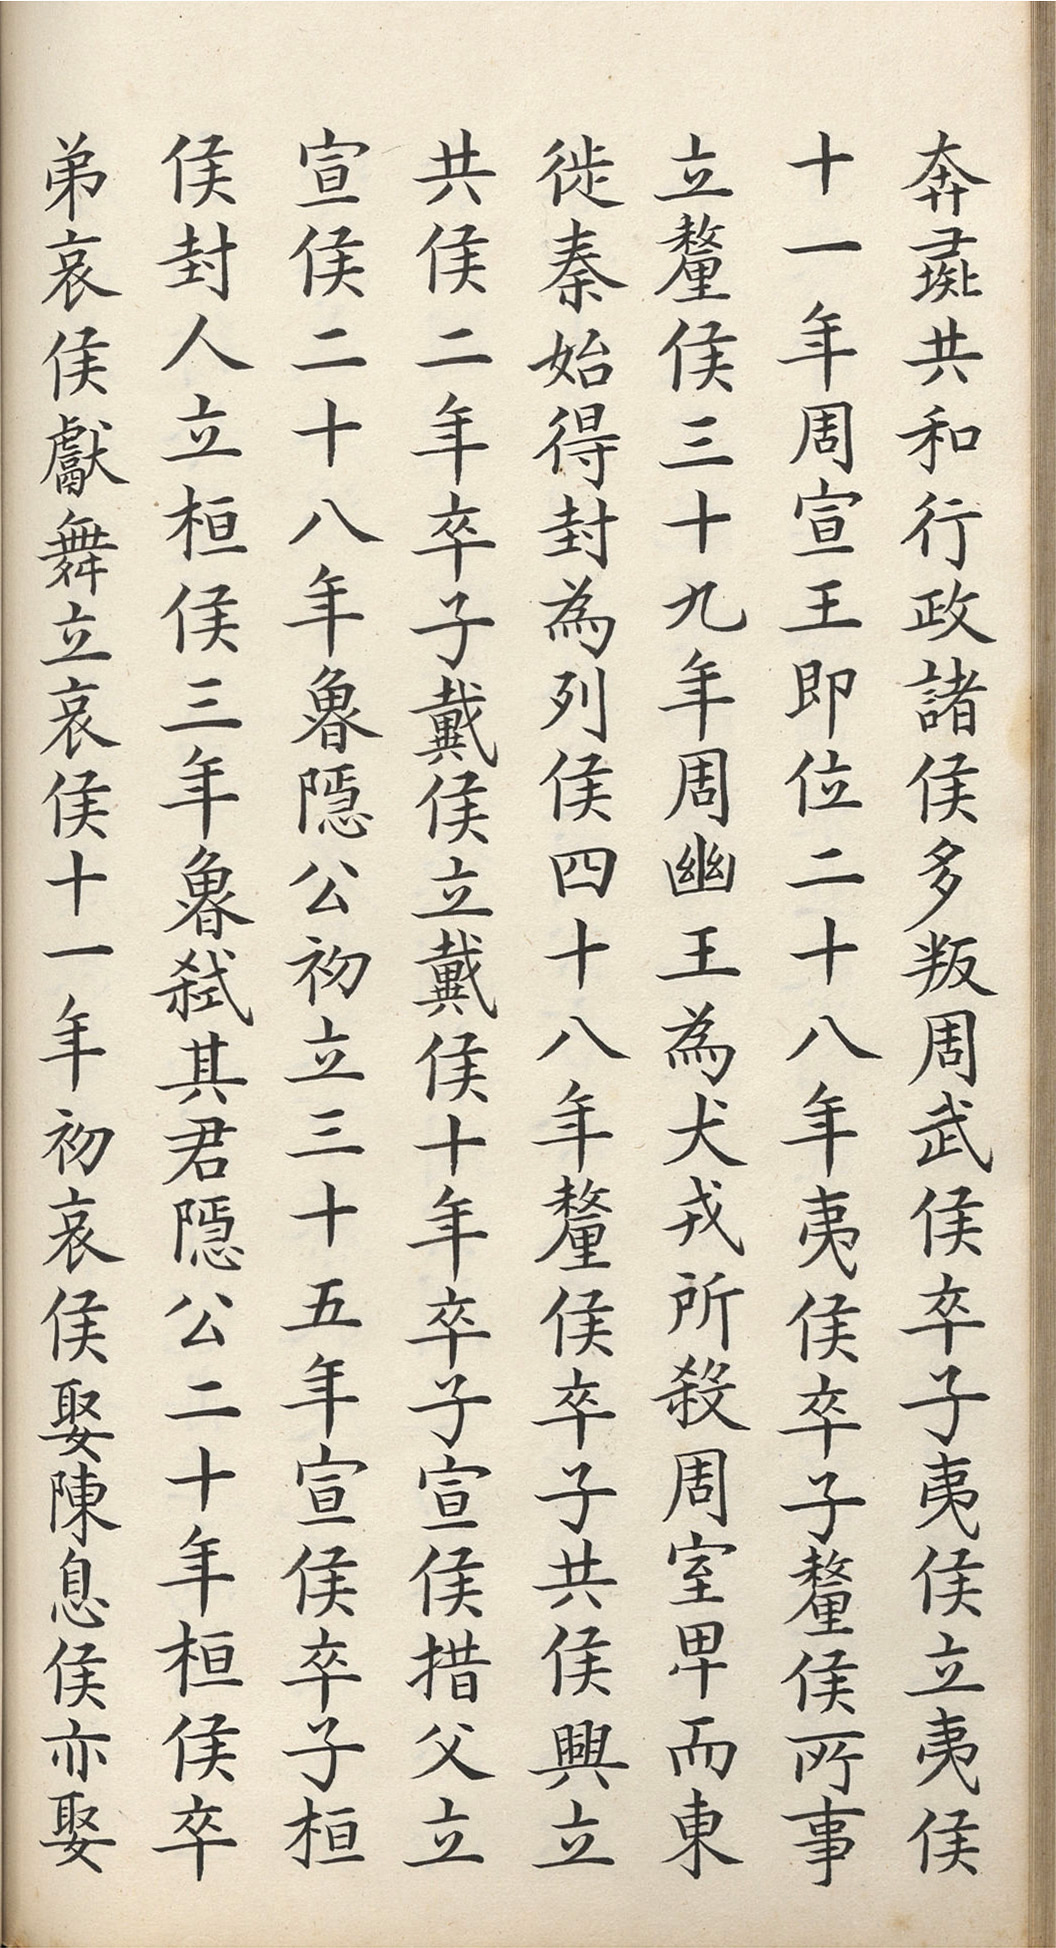 奔彘共和行政諸侯多叛周武侯卒子夷侯立夷侯
十一年周宣王即位二十八年夷侯卒子釐侯所事
立釐侯三十九年周幽王為犬戎所殺周室卑而東
徙秦始得封為列侯四十八年釐侯卒子共侯興立
共侯二年卒子戴侯立戴侯十年卒子宣侯措父立
宣侯二十八年魯隱公初立三十五年宣侯卒子桓
侯封人立桓侯三年魯弒其君隱公二十年桓侯卒
弟哀侯獻舞立哀侯十一年初哀侯娶陳息侯亦娶